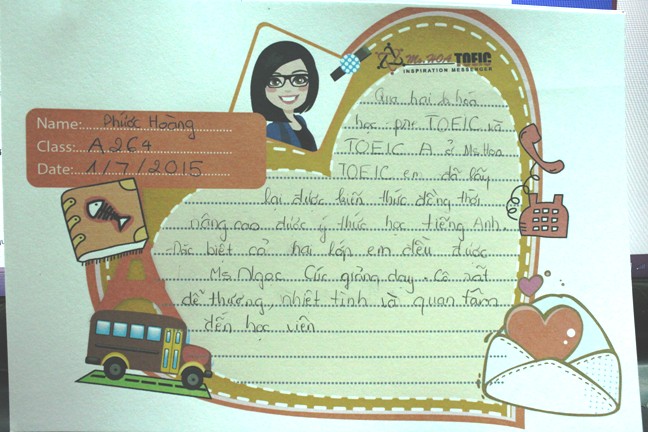 Ms. HOA TOEIC
INSPIRATION MESSENGER
Name: Phước Hoàng
Class: A264
Date: 1/7/2015
Qua hai khóa
học pre TOEIC và
TOEIC A ở Ms.Hoa
TOEIC em đã lấy
lại được kiến thức đồng thời
nâng cao được ý thức học tiếng Anh.
Đặc biệt cả hai lớp em đều được
Ms Ngọc Cúc giảng dạy. Cô rất
dễ thương, nhiệt tình và quan tâm
đến học viên